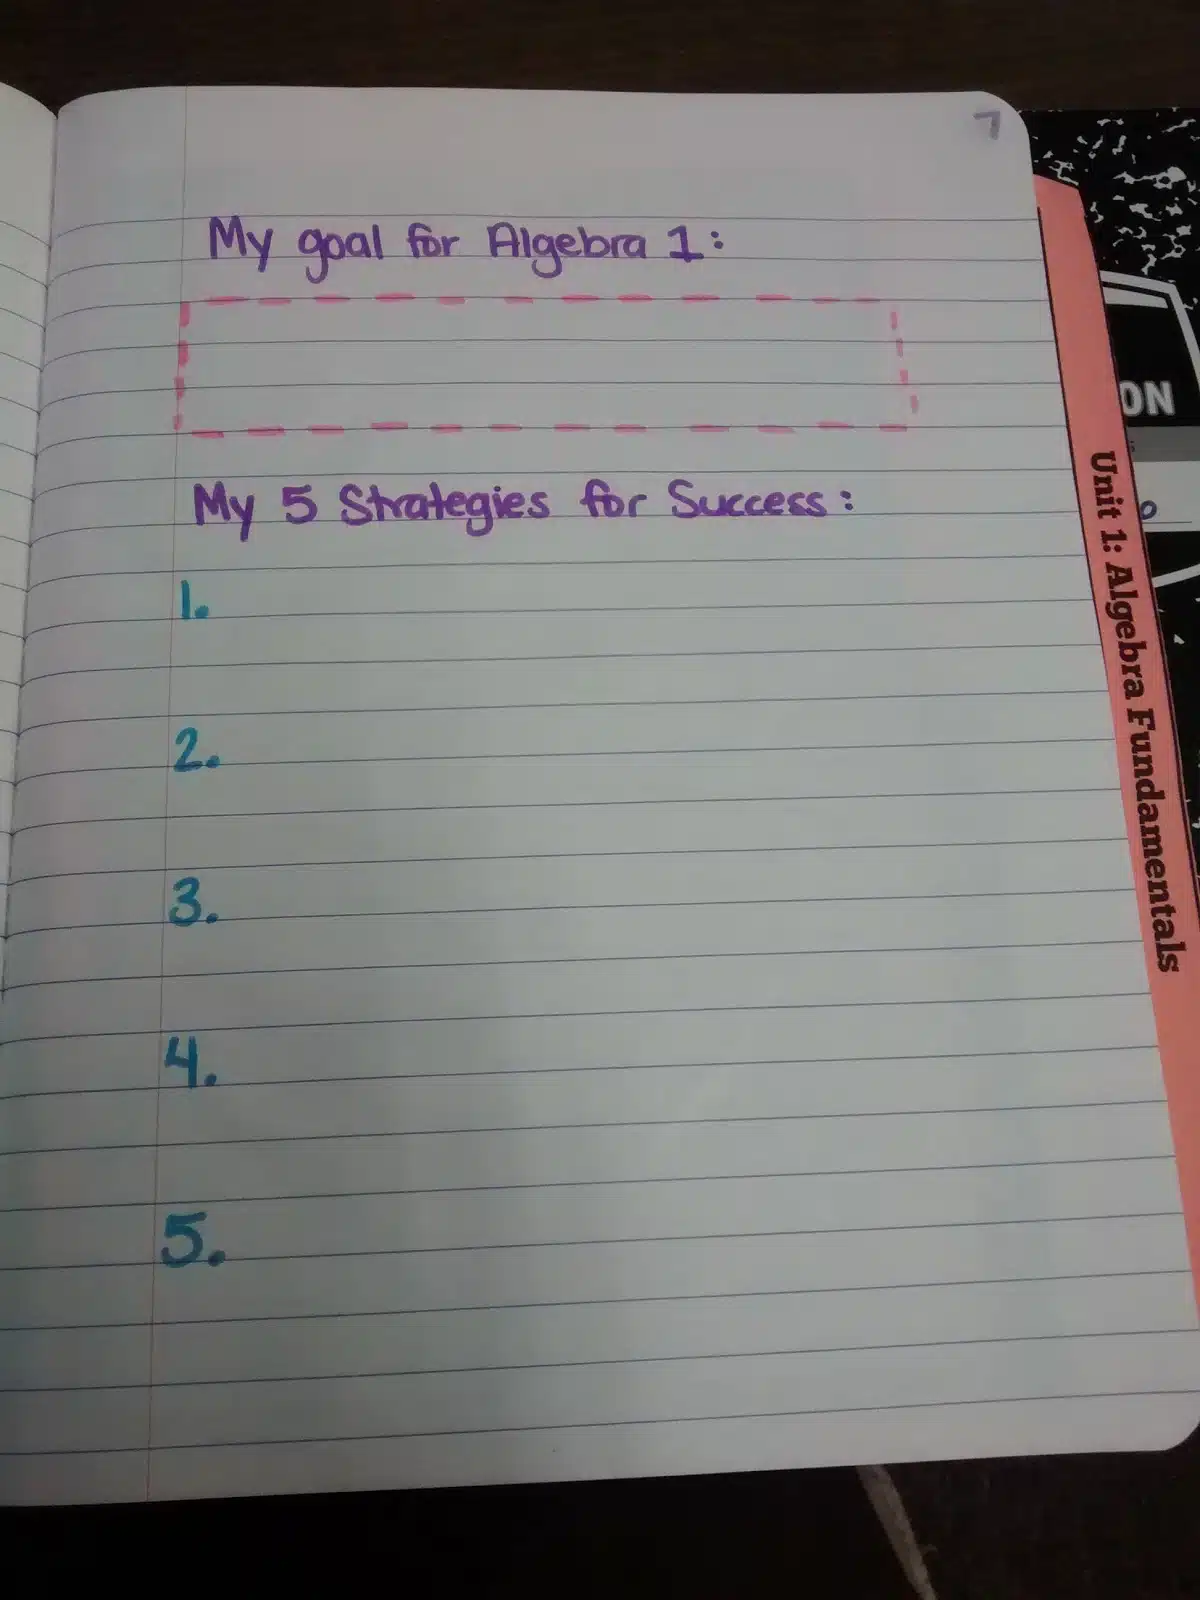 7
My goal for Algebra 1:
My 5 Strategies for Success:
1.
2.
3.
4.
5.
Unit 1: Algebra Fundamentals
ON